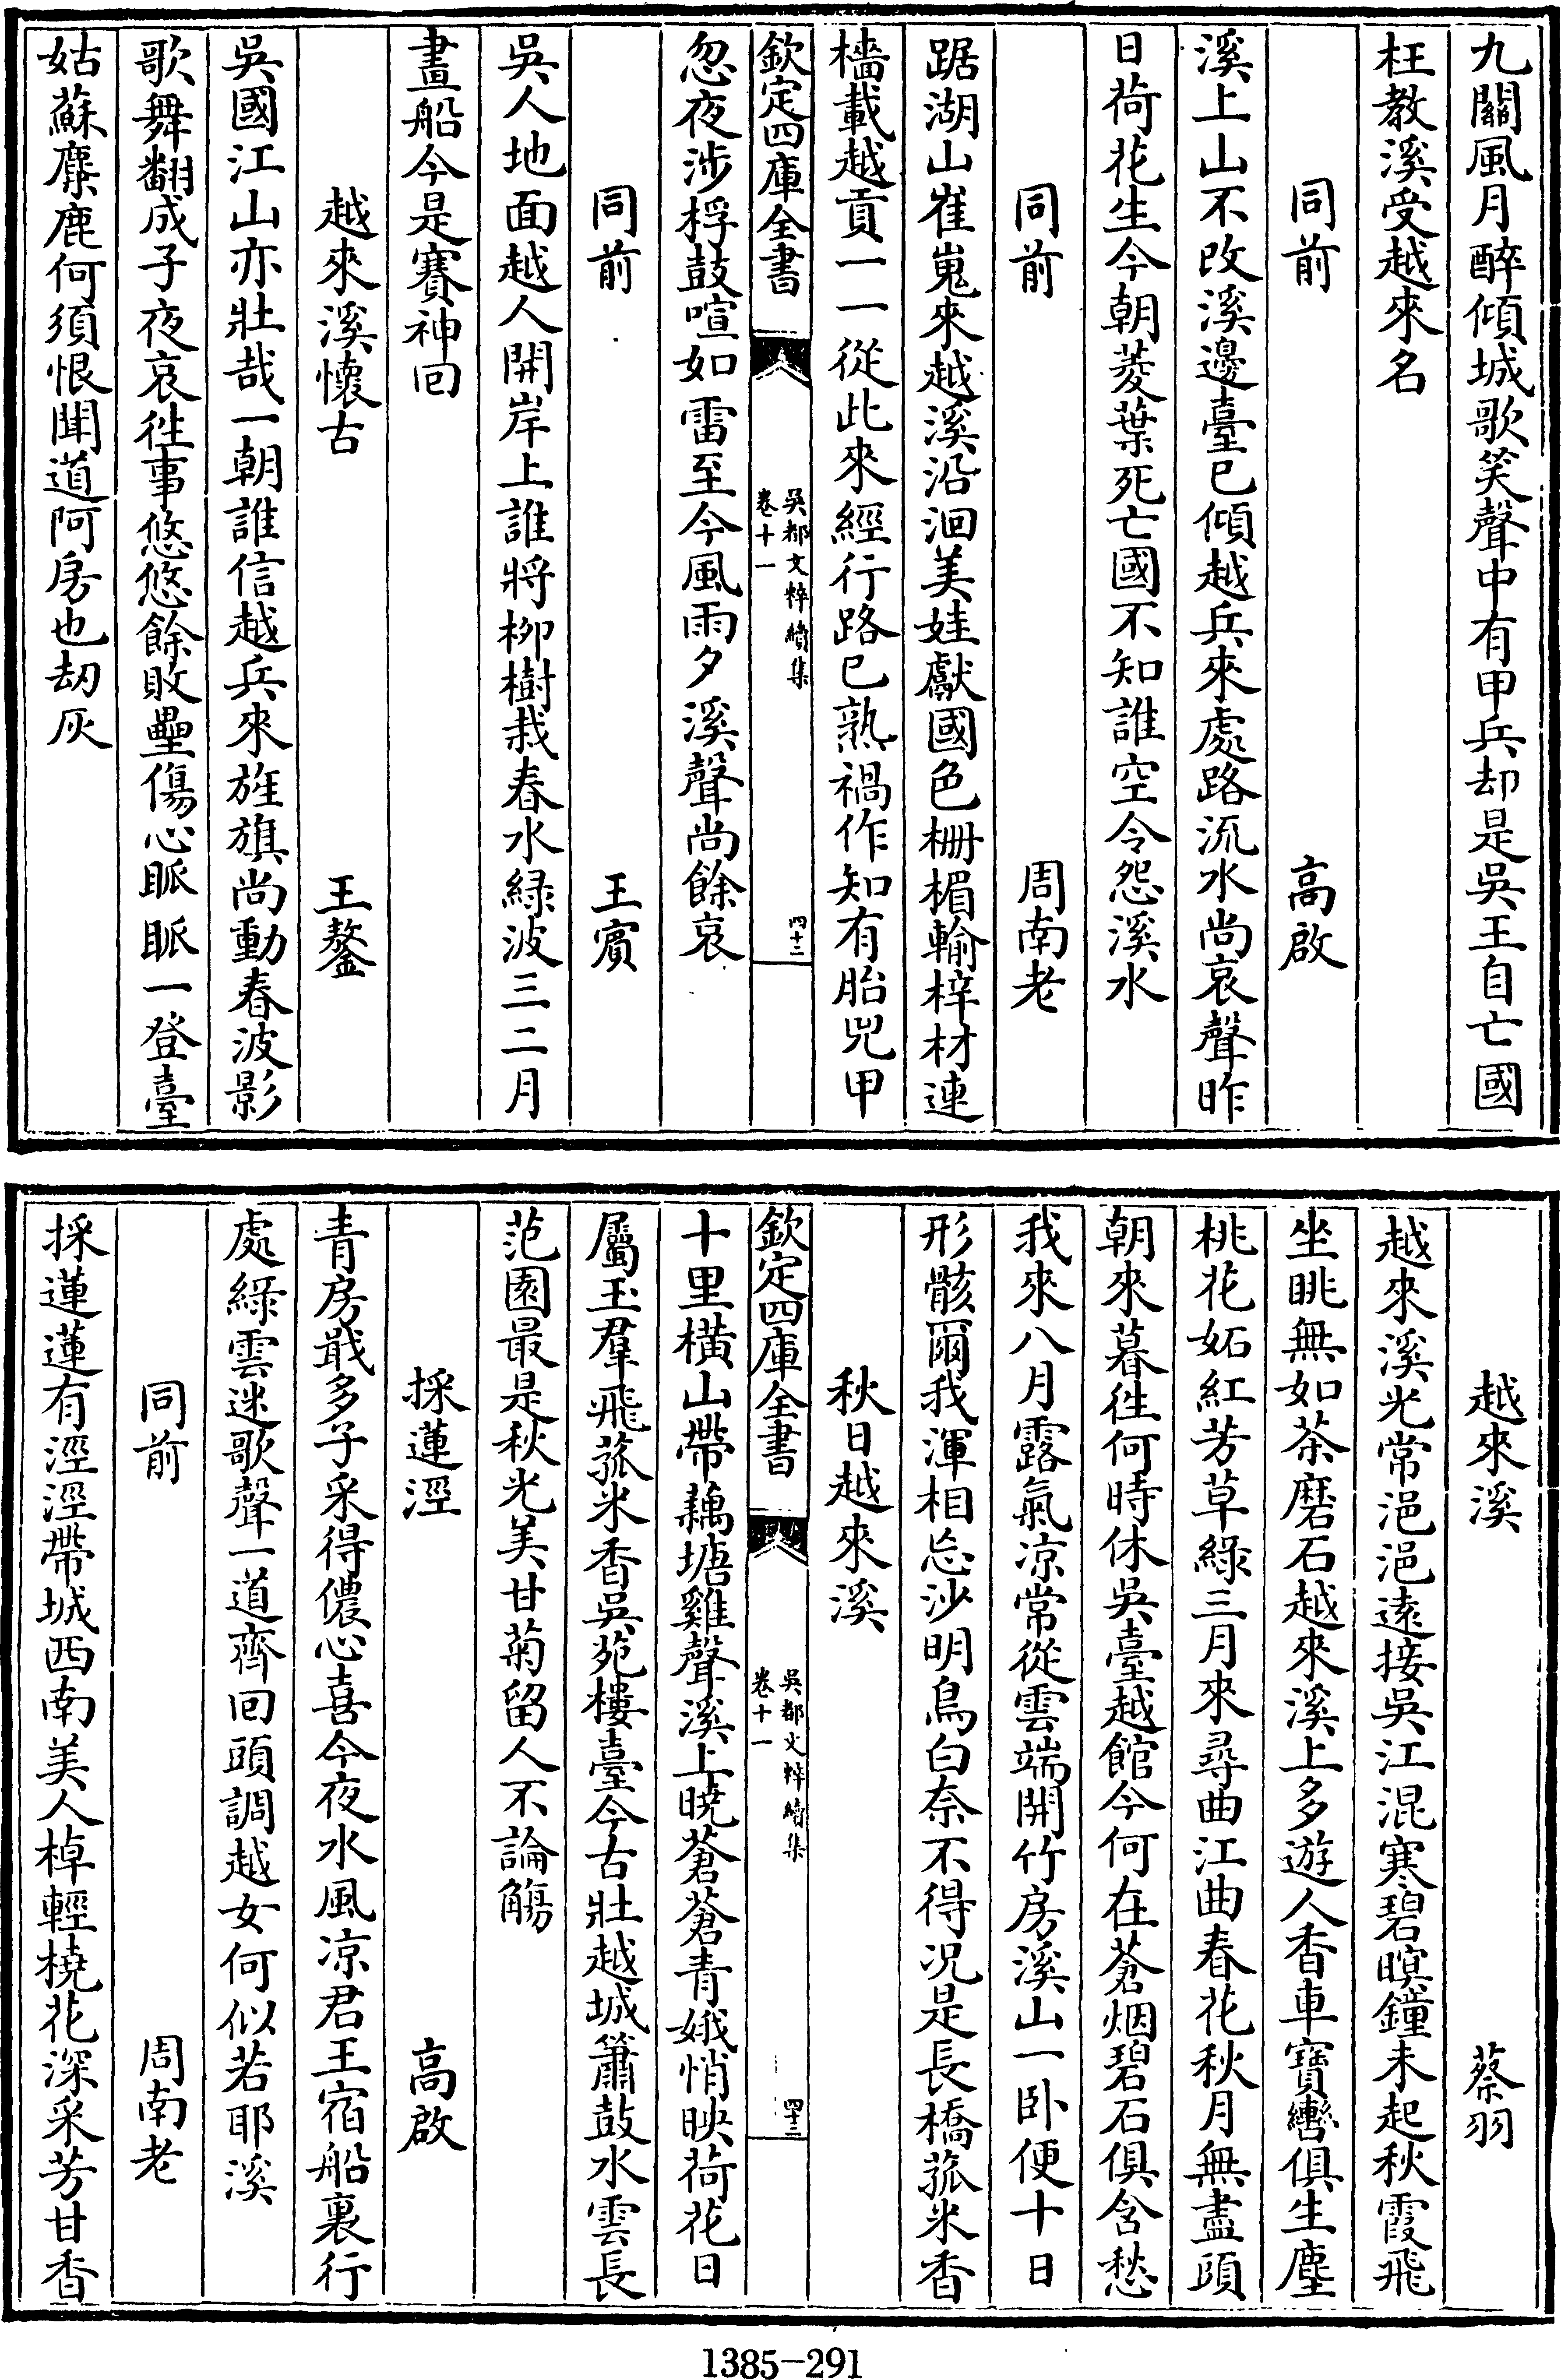 九關風月醉傾城歌笑聲中有甲兵却是吳王自亡國
枉教溪受越來名
同前 高啟
溪上山不改溪邊臺已傾越兵來處路流水尚哀聲昨
日荷花生今朝菱葉死亡國不知誰空令怨溪水
同前 周南老
踞湖山崔嵬來越溪沿洄美娃獻國色栅楣輸梓材連
檣載越貢一一從此來經行路已熟禍作知有胎兕甲
欽定四庫全書 吳都文粹續集 卷十一 四十二
忽夜涉桴鼓喧如雷至今風雨夕溪聲尚餘哀
同前 王賓
吳人地面越人開岸上誰將栁樹栽春水緑波三二月
畫船今是賽神回
越來溪懷古 王鏊
吳國江山亦壯哉一朝誰信越兵來旌旗尚動春波影
歌舞翻成子夜哀徃事悠悠餘敗壘傷心眽眽一登臺
姑蘇麋鹿何須恨聞道阿房也刧灰
越來溪 蔡羽
越來溪光常浥浥遠接吳江混寒碧暝鐘未起秋霞飛
坐眺無如茶磨石越來溪上多遊人香車寶轡俱生塵
桃花妬紅芳草綠三月來尋曲江曲春花秋月無盡頭
朝來暮徃何時休吳臺越館今何在蒼烟碧石俱含愁
我來八月露氣凉常從雲端開竹房溪山一卧便十日
形骸爾我渾相忘沙明鳥白奈不得况是長橋菰米香
秋日越來溪
欽定四庫全書 吳都文粹續集 卷十一 四十三
十里橫山帶藕塘雞聲溪上曉蒼蒼青娥悄映荷花日
屬玉羣飛菰米香吳苑樓臺今古壯越城簫鼓水雲長
范園最是秋光美甘菊留人不論觴
採蓮涇 高啟
青房戢多子采得儂心喜今夜水風凉君王宿船裏行
處綠雲迷歌聲一道齊回頭調越女何似若耶溪
同前 周南老
採蓮蓮有涇涇帶城西南美人棹輕橈花深采芳甘香
1385-291